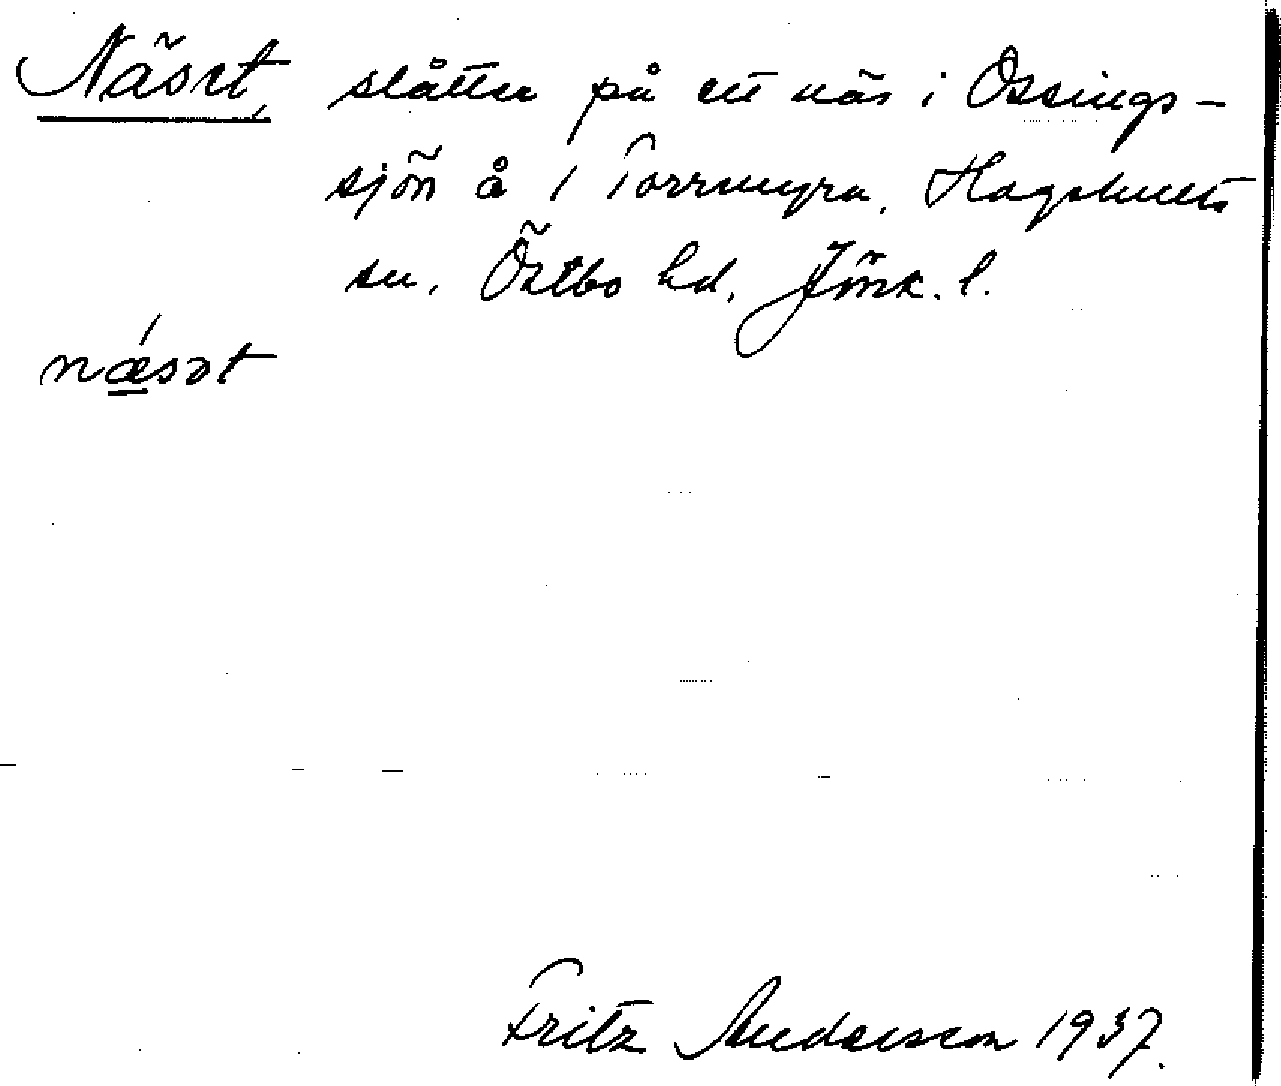 Näset, slåtter på ett näs i Ossings-
sjön å 1 Torrmyra, Hagshults
sn. Östbo hd, Jönk. l.
næ´sət
Fritz Andersson 1937.